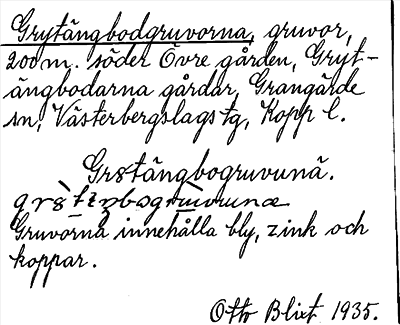 Grytängbodgruvorna, gruvor,
200 m. söder Övre gården, Gryt-
ängbodarna gårdar, Grangärde
sn, Västerbergslags tg, Kopp l.
Gr8tängbogruvunä.
Gruvorna innehålla bly, zink och
koppar.
Otto Blixt 1935.